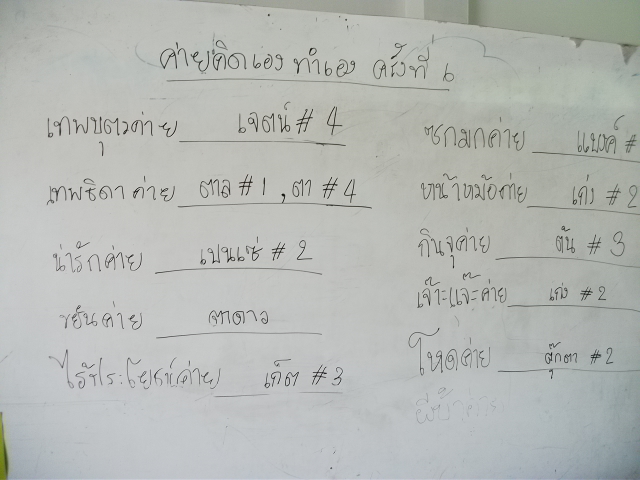 ค่ายคิดเอง ทำเอง ครั้งที่ ๖
เทพบุตรค่าย เจตน์ # 4
เทพธิดาค่าย ตาล # 1 , ตา # 4
น่ารักค่าย เปนเซ่ # 2
ขยันค่าย ตาดาว
ไร้ประโยชน์ค่าย เก็ต # 3
ซกมกค่าย แบงค์ #
หน้าหม้อค่าย เก่ง # 2
กินจุค่าย ต้น # 3
เจ๊าะแจ๊ะค่าย เก่ง # 2
โหดค่าย ตุ๊กตา # 2